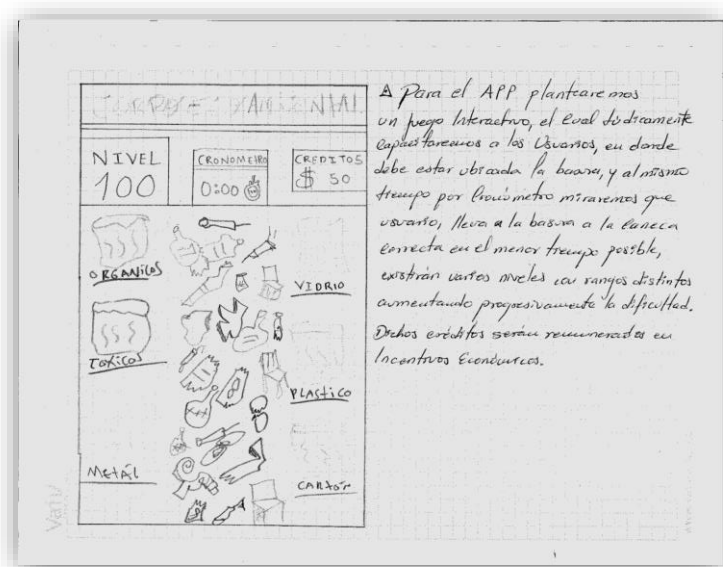 NIVEL
100
CRONOMETRO
0:00
CREDITOS
$ 50
ORGANICOS
TOXICOS
METÁL
VIDRIO
PLASTICO
CARTÓN
Para el APP plantearemos
un juego Interactivo, el cual ludicamente
capacitaremos a los Usuarios, en donde
debe estar ubicada la basura, y al mismo
tiempo por Cronómetro miraremos que
usuario, lleva a la basura a la caneca
correcta en el menor tiempo posible,
existirán varios niveles con rangos distintos
aumentando progresivamente la dificultad.
Dichos créditos serán remunerados en
Incentivos Económicos.